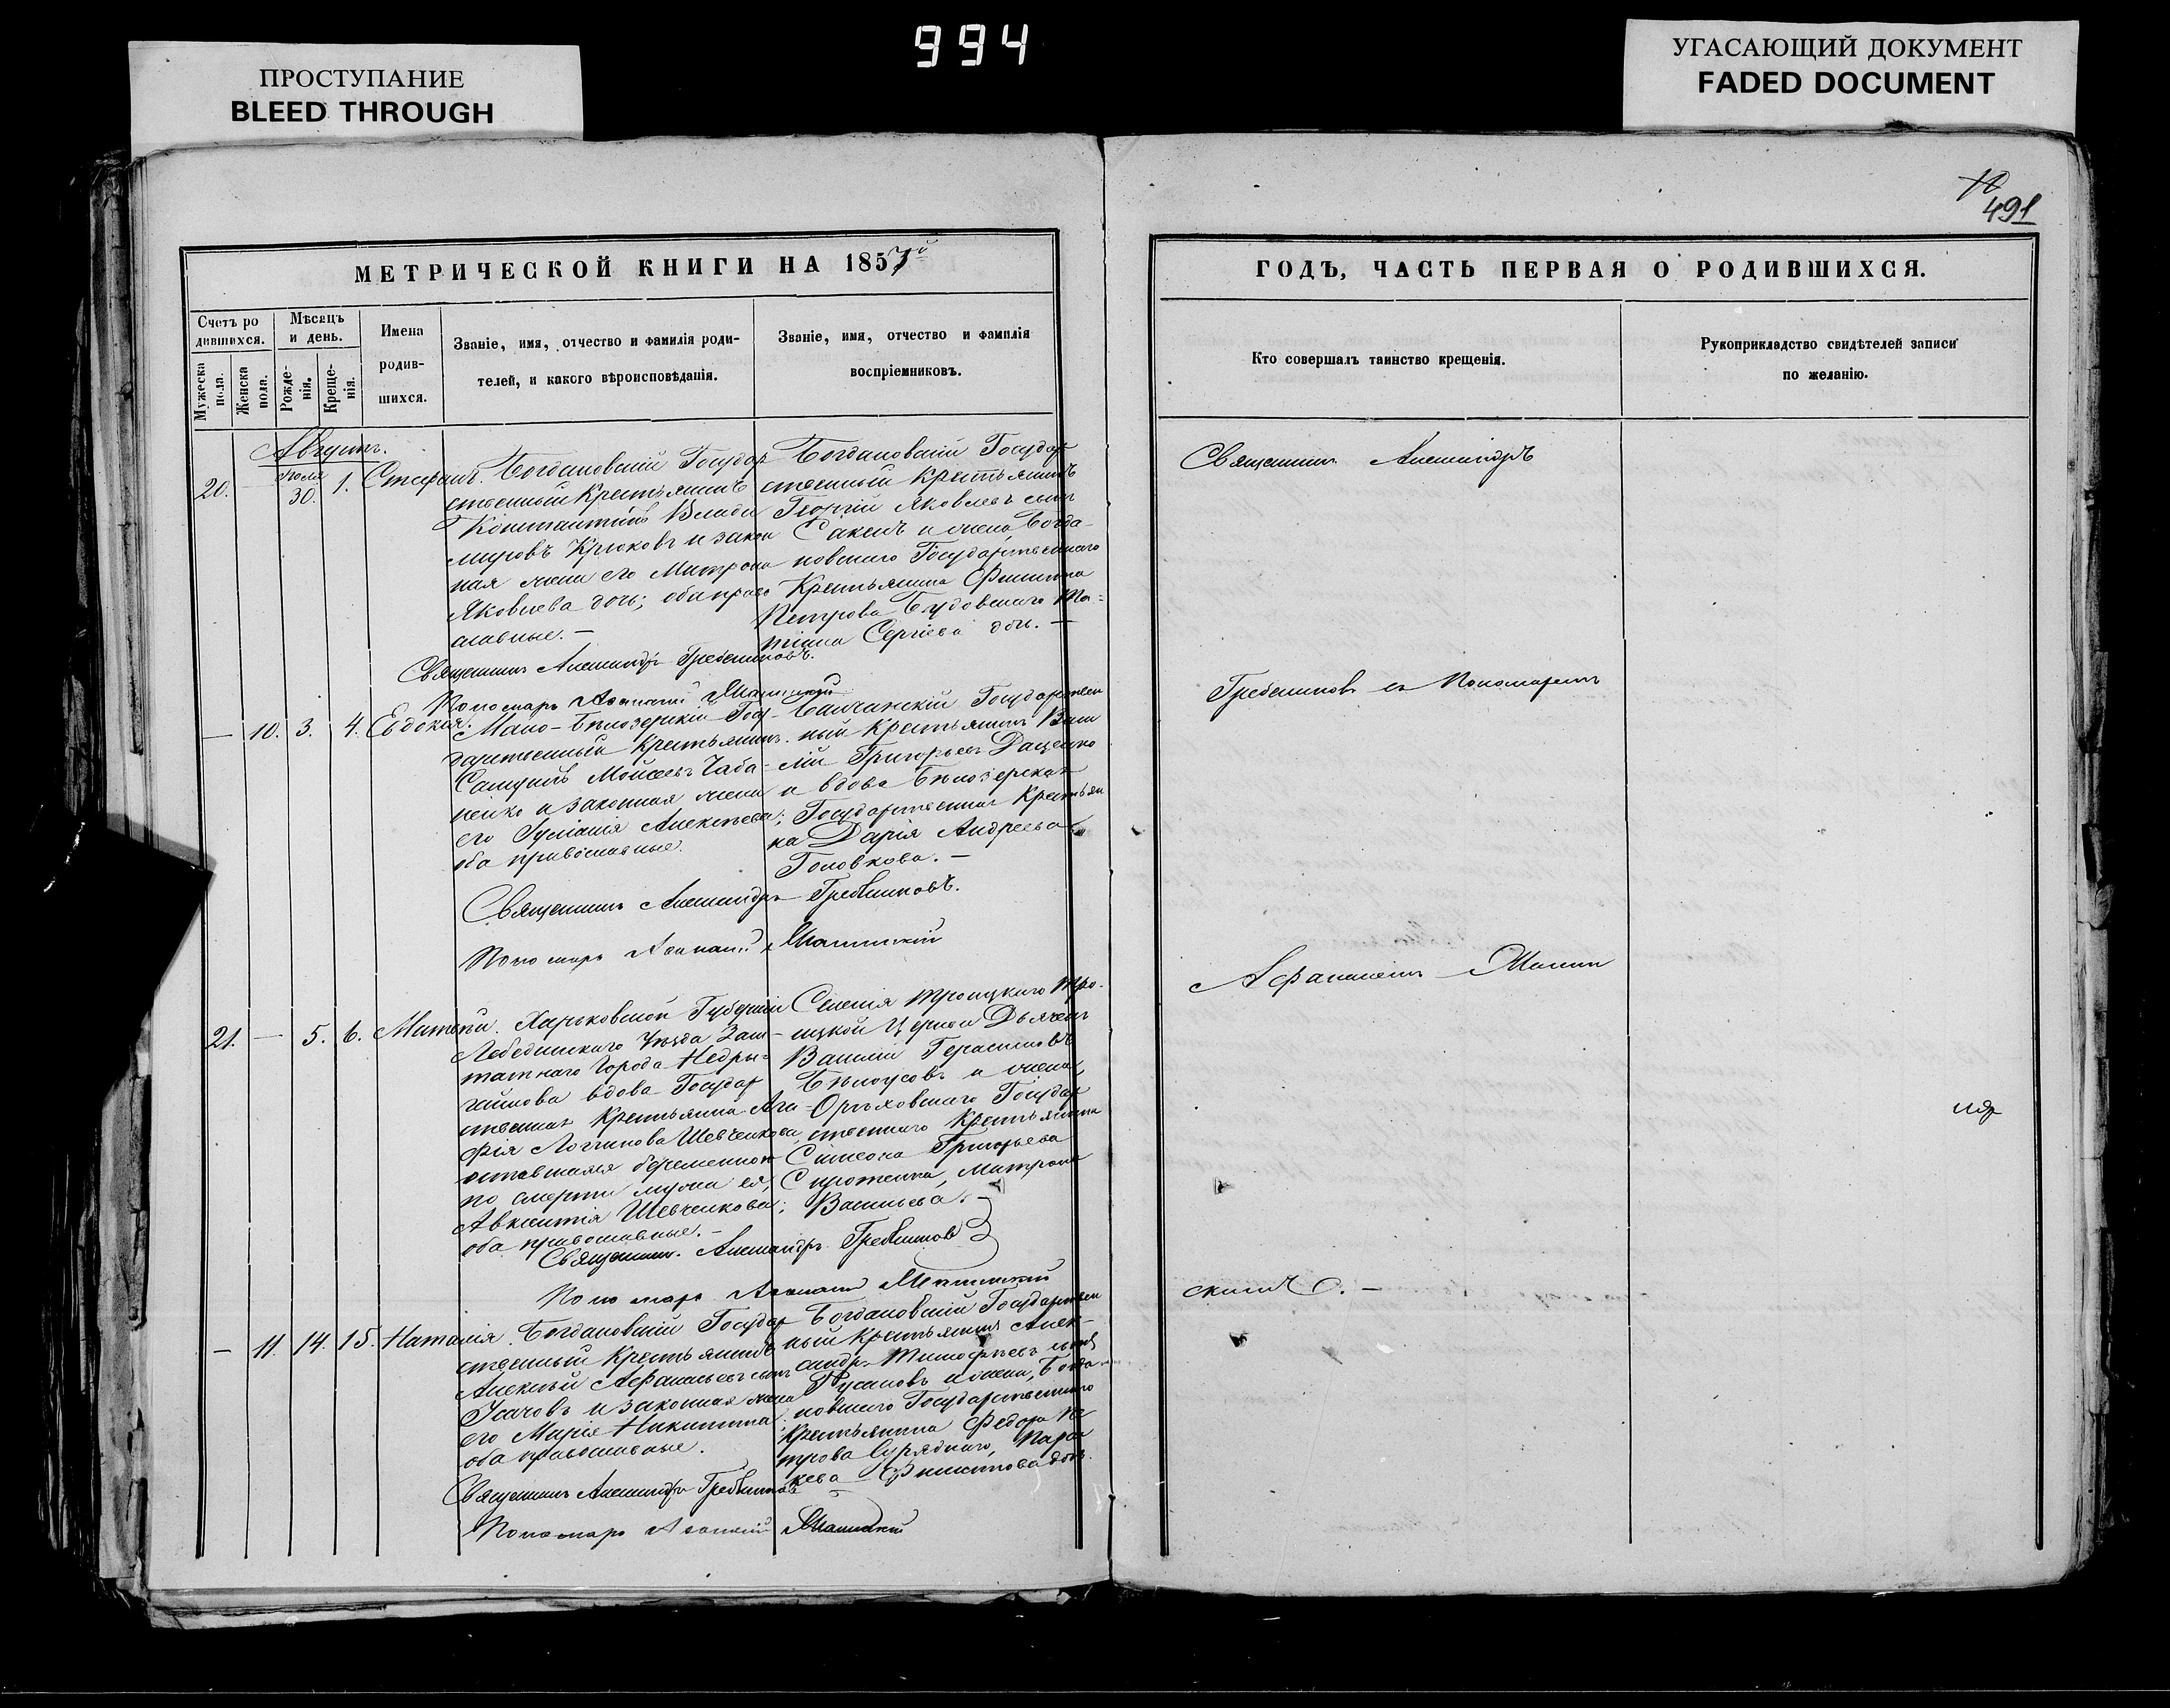 994
ПРОСТУПАНИЕ
BLEED THROUGH
УГАСАЮЩИЙ ДОКУМЕНТ
FADED DOCUMENT
491
МЕТРИЧЕСКОЙ КНИГИ НА 1857й
Счетъ ро
дившихся.
Мужеска пола.
Женска пола.
Мѣсяцъ
и день.
Рожде-
нія.
Креще-
нія.
Имена
родив-
шихся.
Званіе, имя, отчество и фамилія роди-
телей, и какого вѣроисповѣданія.
Званіе, имя, отчество и фамилія
воспріемниковъ.
Августъ.
20. — Іюля 30. 1. Стефанъ.
Богдановскій Государ
ственный Крестьянинъ
Константинъ Влади
мировъ Крюковъ и закон
ная жена его Матрона
Яковлева дочь; оба право
славные. —
Богдановскій Государ
ственный Крестьянинъ
Георгій Яковлевъ сынъ
Саксинъ и жена, Богда-
новскаго Государственнаго
Крестьянина Филиппа
Петрова Будовскаго Та-
тіана Сергіева доч. —
Священникъ Александръ Гребенниковъ.
Пономарь Афанасій
— 10. 3. 4. Евдокія.
Мало-Бѣлозерскій Госу-
дарственный Крестьянинъ
Самуилъ Моисеевъ Чаба-
ненко и законная жена
его Іуліанія Алексѣева;
оба православные.
Балчанскій Государствен
ный Крестьянинъ Васи
лій Григорьевъ Даценко
и вдова Бѣлозерская
Государственная Крестьян
ка Дарія Андреева
Головкова. —
Священникъ Александръ Гребенниковъ.
Пономарь Афанасій
21. — 5. 6. Матѳей.
Харьковской Губерніи
Лебединскаго Уѣзда Заш-
татнаго Города Недры-
гайлова вдова Государ
ственная Крестьянка Ага-
фія Логгинова Шевченкова,
оставшаяся беременною
по смерти мужа ея,
Авксентія Шевченкова;
оба православные. —
Селенія Троицкаго Тро-
ицкой Церкви Дьячекъ
Василій Герасимовъ
Бѣлоусовъ и жена,
Орѣховскаго Государ
ственнаго Крестьянина
Симеона Григорьева
Сиротенка, Матрона
Васильева. —
Священник. Александръ Гребенников
Пономарь Афанасій
— 11. 14. 15. Наталія.
Богдановскій Государ
ственный Крестьянинъ
Алексѣй Афанасьевъ сынъ
Усачовъ и законная жена
его Марія Никитина;
оба православные.
Богдановскій Государствен
ный Крестьянинъ Алек-
сандръ Тимофѣевъ сынъ
Русановъ и жена, Богда-
новскаго Государственнаго
Крестьянина Федора Пе
трова Парас
кева Филиппова доч.
Священникъ Александръ Гребенников
Пономарь Афанасій
ГОДЪ, ЧАСТЬ ПЕРВАЯ О РОДИВШИХСЯ.
Кто совершалъ таинство крещенія.
Рукоприкладство свидѣтелей записи
по желанію.
Священникъ Александръ
Гребенниковъ съ Пономаремъ
Афанасіемъ
скимъ. —